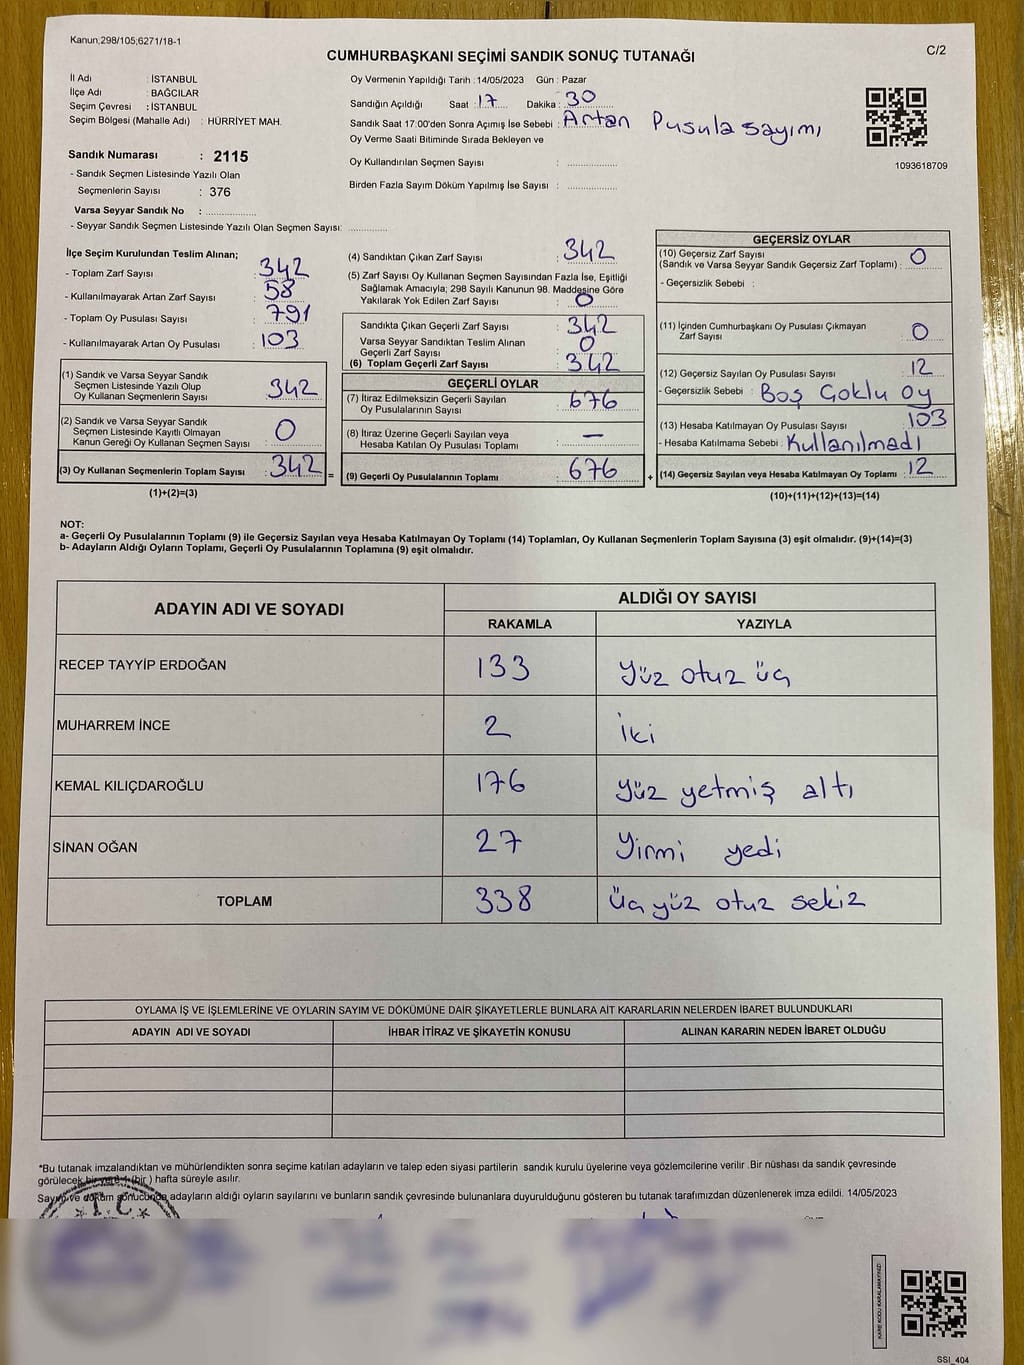 Kanun;298/105;6271/18-1
C/2
CUMHURBAŞKANI SEÇİMİ SANDIK SONUÇ TUTANAĞI
İl Adı : İSTANBUL
İlçe Adı : BAĞCILAR
Seçim Çevresi : İSTANBUL
Seçim Bölgesi (Mahalle Adı) : HÜRRİYET MAH.
Sandık Numarası : 2115
- Sandık Seçmen Listesinde Yazılı Olan
Seçmenlerin Sayısı : 376
Varsa Seyyar Sandık No : ................
- Seyyar Sandık Seçmen Listesinde Yazılı Olan Seçmen Sayısı: ............
Oy Vermenin Yapıldığı Tarih : 14/05/2023 Gün : Pazar
Sandığın Açıldığı Saat : 17 Dakika : 30
Sandık Saat 17:00'den Sonra Açımış İse Sebebi : Artan Pusula sayımı
Oy Verme Saati Bitiminde Sırada Bekleyen ve
Oy Kullandırılan Seçmen Sayısı : ...............
Birden Fazla Sayım Döküm Yapılmış İse Sayısı : ...............
1093618709
İlçe Seçim Kurulundan Teslim Alınan;
- Toplam Zarf Sayısı : 342
- Kullanılmayarak Artan Zarf Sayısı : 58
- Toplam Oy Pusulası Sayısı : 791
- Kullanılmayarak Artan Oy Pusulası : 103
(1) Sandık ve Varsa Seyyar Sandık
Seçmen Listesinde Yazılı Olup
Oy Kullanan Seçmenlerin Sayısı : 342
(2) Sandık ve Varsa Seyyar Sandık
Seçmen Listesinde Kayıtlı Olmayan
Kanun Gereği Oy Kullanan Seçmen Sayısı : 0
(3) Oy Kullanan Seçmenlerin Toplam Sayısı : 342 =
(1)+(2)=(3)
(4) Sandıktan Çıkan Zarf Sayısı : 342
(5) Zarf Sayısı Oy Kullanan Seçmen Sayısından Fazla İse, Eşitliği
Sağlamak Amacıyla; 298 Sayılı Kanunun 98. Maddesine Göre
Yakılarak Yok Edilen Zarf Sayısı : 0
Sandıkta Çıkan Geçerli Zarf Sayısı : 342
Varsa Seyyar Sandıktan Teslim Alınan
Geçerli Zarf Sayısı : 0
(6) Toplam Geçerli Zarf Sayısı : 342
GEÇERLİ OYLAR
(7) İtiraz Edilmeksizin Geçerli Sayılan
Oy Pusulalarının Sayısı : 676
(8) İtiraz Üzerine Geçerli Sayılan veya
Hesaba Katılan Oy Pusulası Toplamı : —
(9) Geçerli Oy Pusulalarının Toplamı : 676 +
GEÇERSİZ OYLAR
(10) Geçersiz Zarf Sayısı
(Sandık ve Varsa Seyyar Sandık Geçersiz Zarf Toplamı) : 0
- Geçersizlik Sebebi :
(11) İçinden Cumhurbaşkanı Oy Pusulası Çıkmayan
Zarf Sayısı : 0
(12) Geçersiz Sayılan Oy Pusulası Sayısı : 12
- Geçersizlik Sebebi : Boş Çoklu oy
(13) Hesaba Katılmayan Oy Pusulası Sayısı : 103
- Hesaba Katılmama Sebebi : Kullanılmadı
(14) Geçersiz Sayılan veya Hesaba Katılmayan Oy Toplamı : 12
(10)+(11)+(12)+(13)=(14)
NOT:
a- Geçerli Oy Pusulalarının Toplamı (9) ile Geçersiz Sayılan veya Hesaba Katılmayan Oy Toplamı (14) Toplamları, Oy Kullanan Seçmenlerin Toplam Sayısına (3) eşit olmalıdır. (9)+(14)=(3)
b- Adayların Aldığı Oyların Toplamı, Geçerli Oy Pusulalarının Toplamına (9) eşit olmalıdır.
ADAYIN ADI VE SOYADI
ALDIĞI OY SAYISI
RAKAMLA YAZIYLA
RECEP TAYYİP ERDOĞAN 133 yüz otuz üç
MUHARREM İNCE 2 iki
KEMAL KILIÇDAROĞLU 176 yüz yetmiş altı
SİNAN OĞAN 27 Yirmi yedi
TOPLAM 338 üç yüz otuz sekiz
OYLAMA İŞ VE İŞLEMLERİNE VE OYLARIN SAYIM VE DÖKÜMÜNE DAİR ŞİKAYETLERLE BUNLARA AİT KARARLARIN NELERDEN İBARET BULUNDUKLARI
ADAYIN ADI VE SOYADI İHBAR İTİRAZ VE ŞİKAYETİN KONUSU ALINAN KARARIN NEDEN İBARET OLDUĞU
*Bu tutanak imzalandıktan ve mühürlendikten sonra seçime katılan adayların ve talep eden siyasi partilerin sandık kurulu üyelerine veya gözlemcilerine verilir .Bir nüshası da sandık çevresinde
görülecek bir yere 1 (bir ) hafta süreyle asılır.
Sayım ve döküm sonucunda adayların aldığı oyların sayılarını ve bunların sandık çevresinde bulunanlara duyurulduğunu gösteren bu tutanak tarafımızdan düzenlenerek imza edildi. 14/05/2023
T.C.
KARE KODU KARALAMAYINIZ!
SSI_404